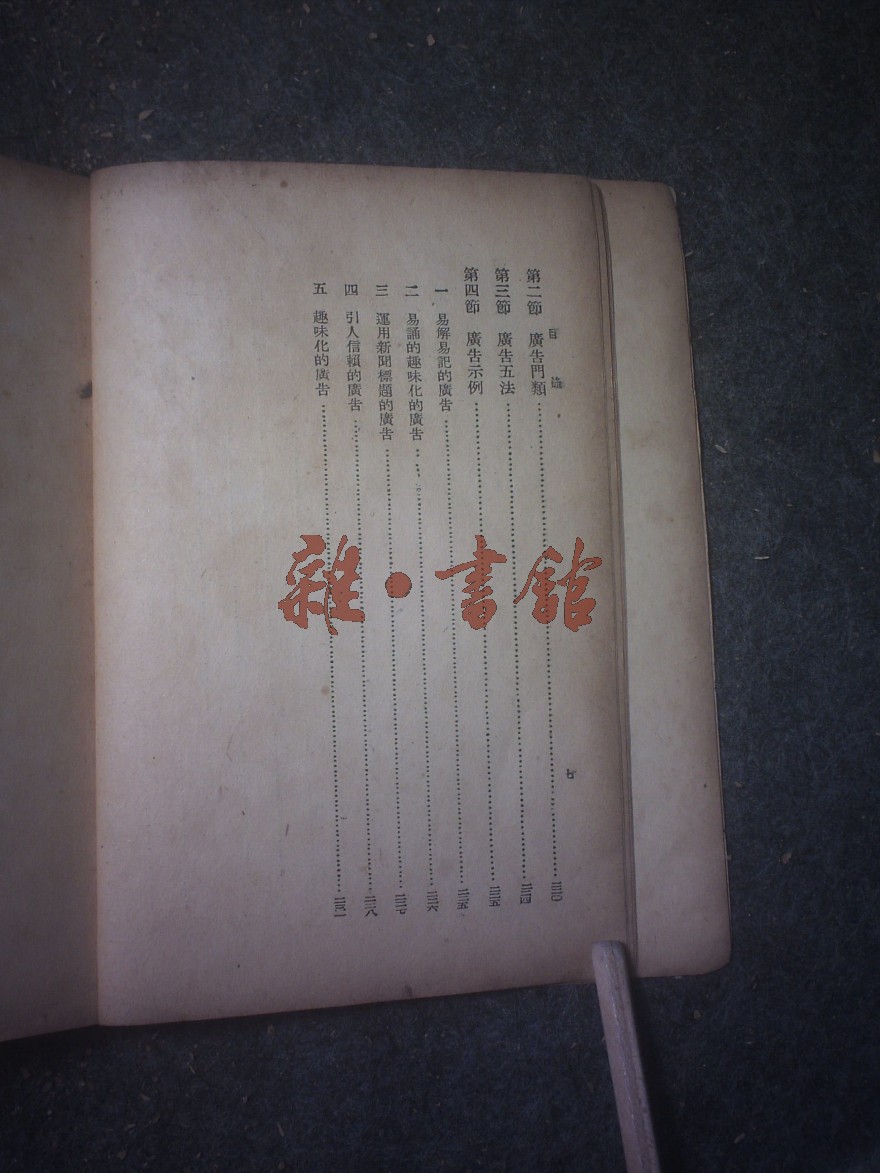 目錄
七
第二節 廣告門類……二二〇
第三節 廣告五法……二二四
第四節 廣告示例……二二五
一 易解易記的廣告……二二五
二 易誦的趣味化的廣告……二二六
三 運用新聞標題的廣告……二二七
四 引人信賴的廣告……二二八
五 趣味化的廣告……二三一
雜·書館